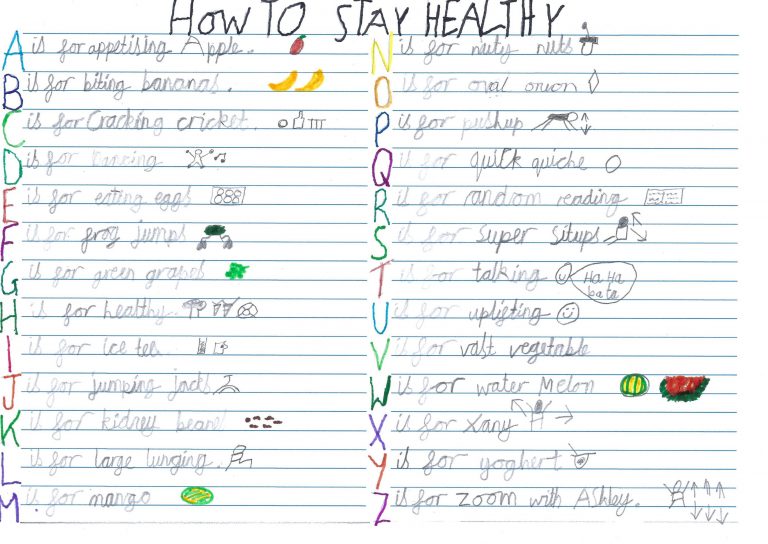 HOW TO STAY HEALTHY
A is for appetising Apple.
B is for biting bananas.
C is for Cracking cricket.
D is for Dancing
E is for eating eggs
F is for frog jumps
G is for green grapes
H is for healthy.
I is for Ice tea.
J is for jumping jacks
K is for kidney beans
L is for large lunging.
M. is for mango
N is for nuty nuts
O is for oval onion
P is for pushup
Q is for quick quiche
R is for random reading
S is for super situps
T is for talking
Ha Ha
U is for uplifting
V is for vast vegetable
W is for water Melon
X is for Xany
Y is for yoghert
Z is for zoom with Ashley.